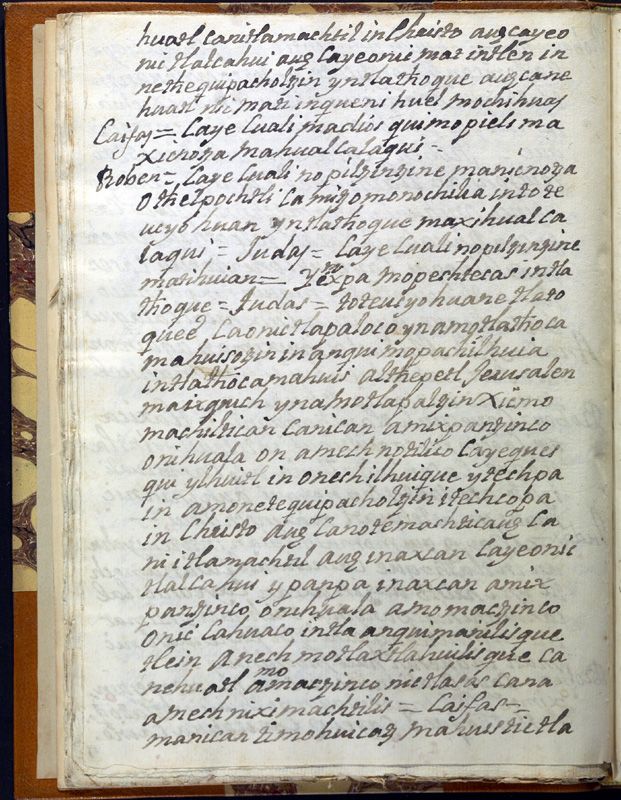 huatl canitlamachtil in Christo auq cayeo
nictlalcahui auq cayeonimatintlen in
nethequipacholtzin yntlathoque auq cane
huatl nimatinqueni huel mochihuas
Caifas = Caye Cuali madios quimopielis ma
xicnotza mahualCalaqui =
Roben = Caye Cuali nopilzinzine manicnotza
Othelpochtli Camitzomonochilia intote
ucyohuan yntlathoque maxihualca
laqui = Judas = Caye Cuali nopilzinzine
matihuian = ymixpa mopechtecas intla
thoque = Judas = totecuyohuane tlato
quee Caonictlapaloco ynamotlathoca
mahuisotzin in anquimopachilhuia
intlathocamahuis althepetl Jerusalen
maixquich ynamotlapaltzin Xicmo
machiltican Canican amixpantzinco
onihuala on amechnotilico Cayeques
qui ylhuitl in onechilhuique ytechpa
in amonetequipacholtzin itechcopa
in Christo auq Canotemachticauq Ca
nitlamachtil auq inaxcan Cayeonic
tlalCahui ypanpa inaxcan amix
pantzinco onihuala amomactzinco
onic Cahuaco intla anquimatilisque
tlein anechmotlaxtlahuilisque ca
nehuatl amomactzinco nictlasas cana
amechniximachtilis = Caifas =
manican timohuicatz mahuistictla